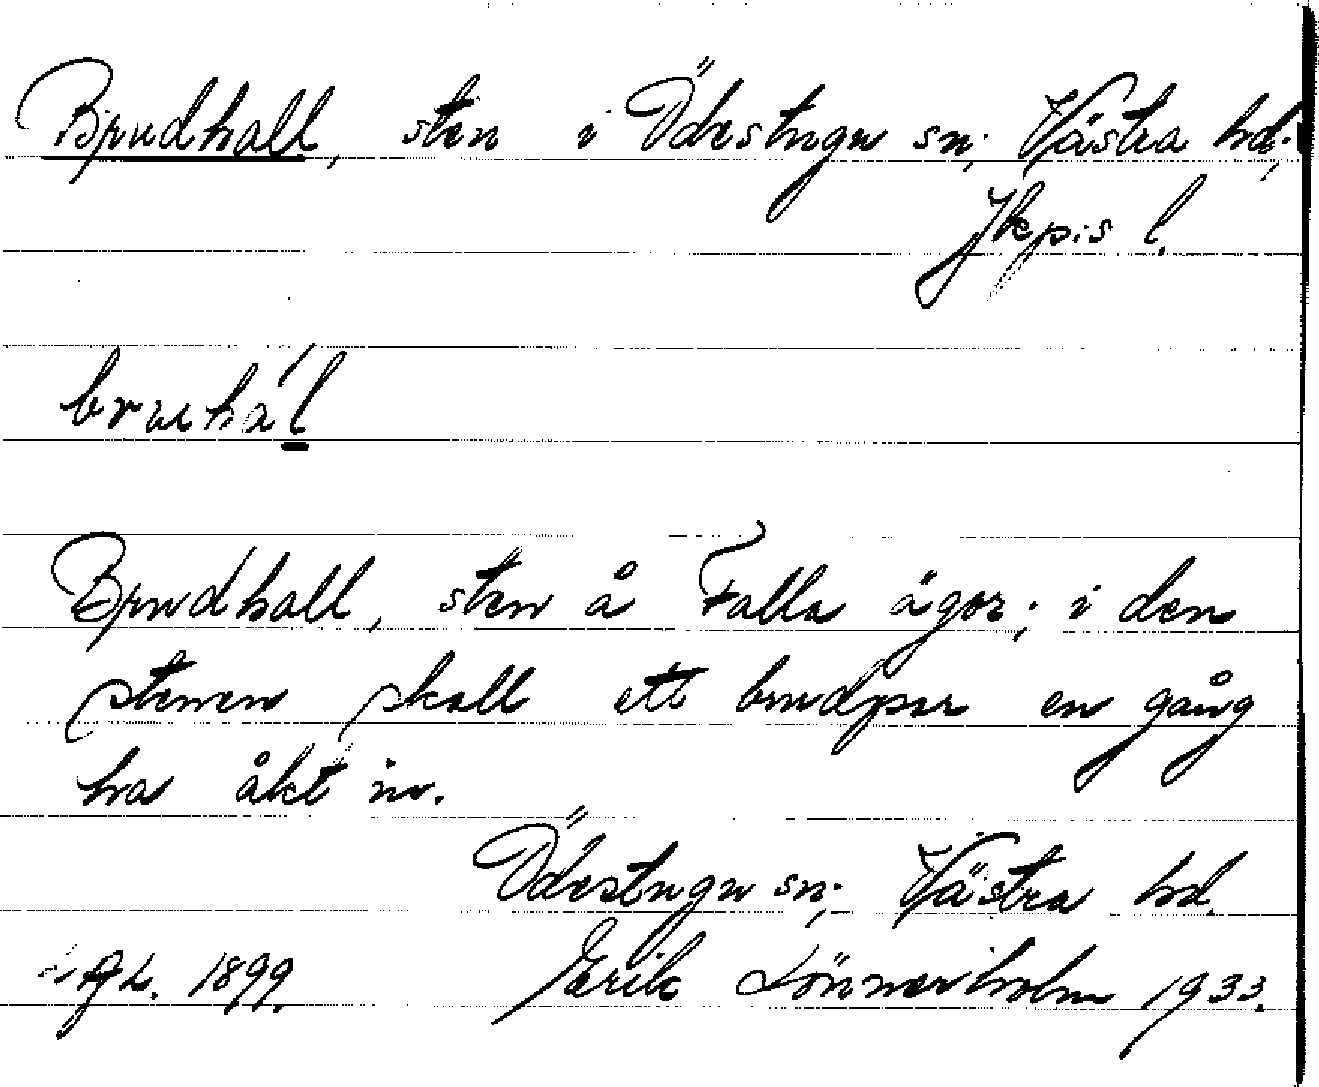 Brudhall, sten i Ödestugu sn; Västra hd;
Jkpis l.
bruhál
Brudhall, sten å Falla ägor; i den
stenen skall ett brudpar en gång
ha åkt in.
Ödestugu sn; Västra hd.
1899. Erik Lönnerholm 1933.